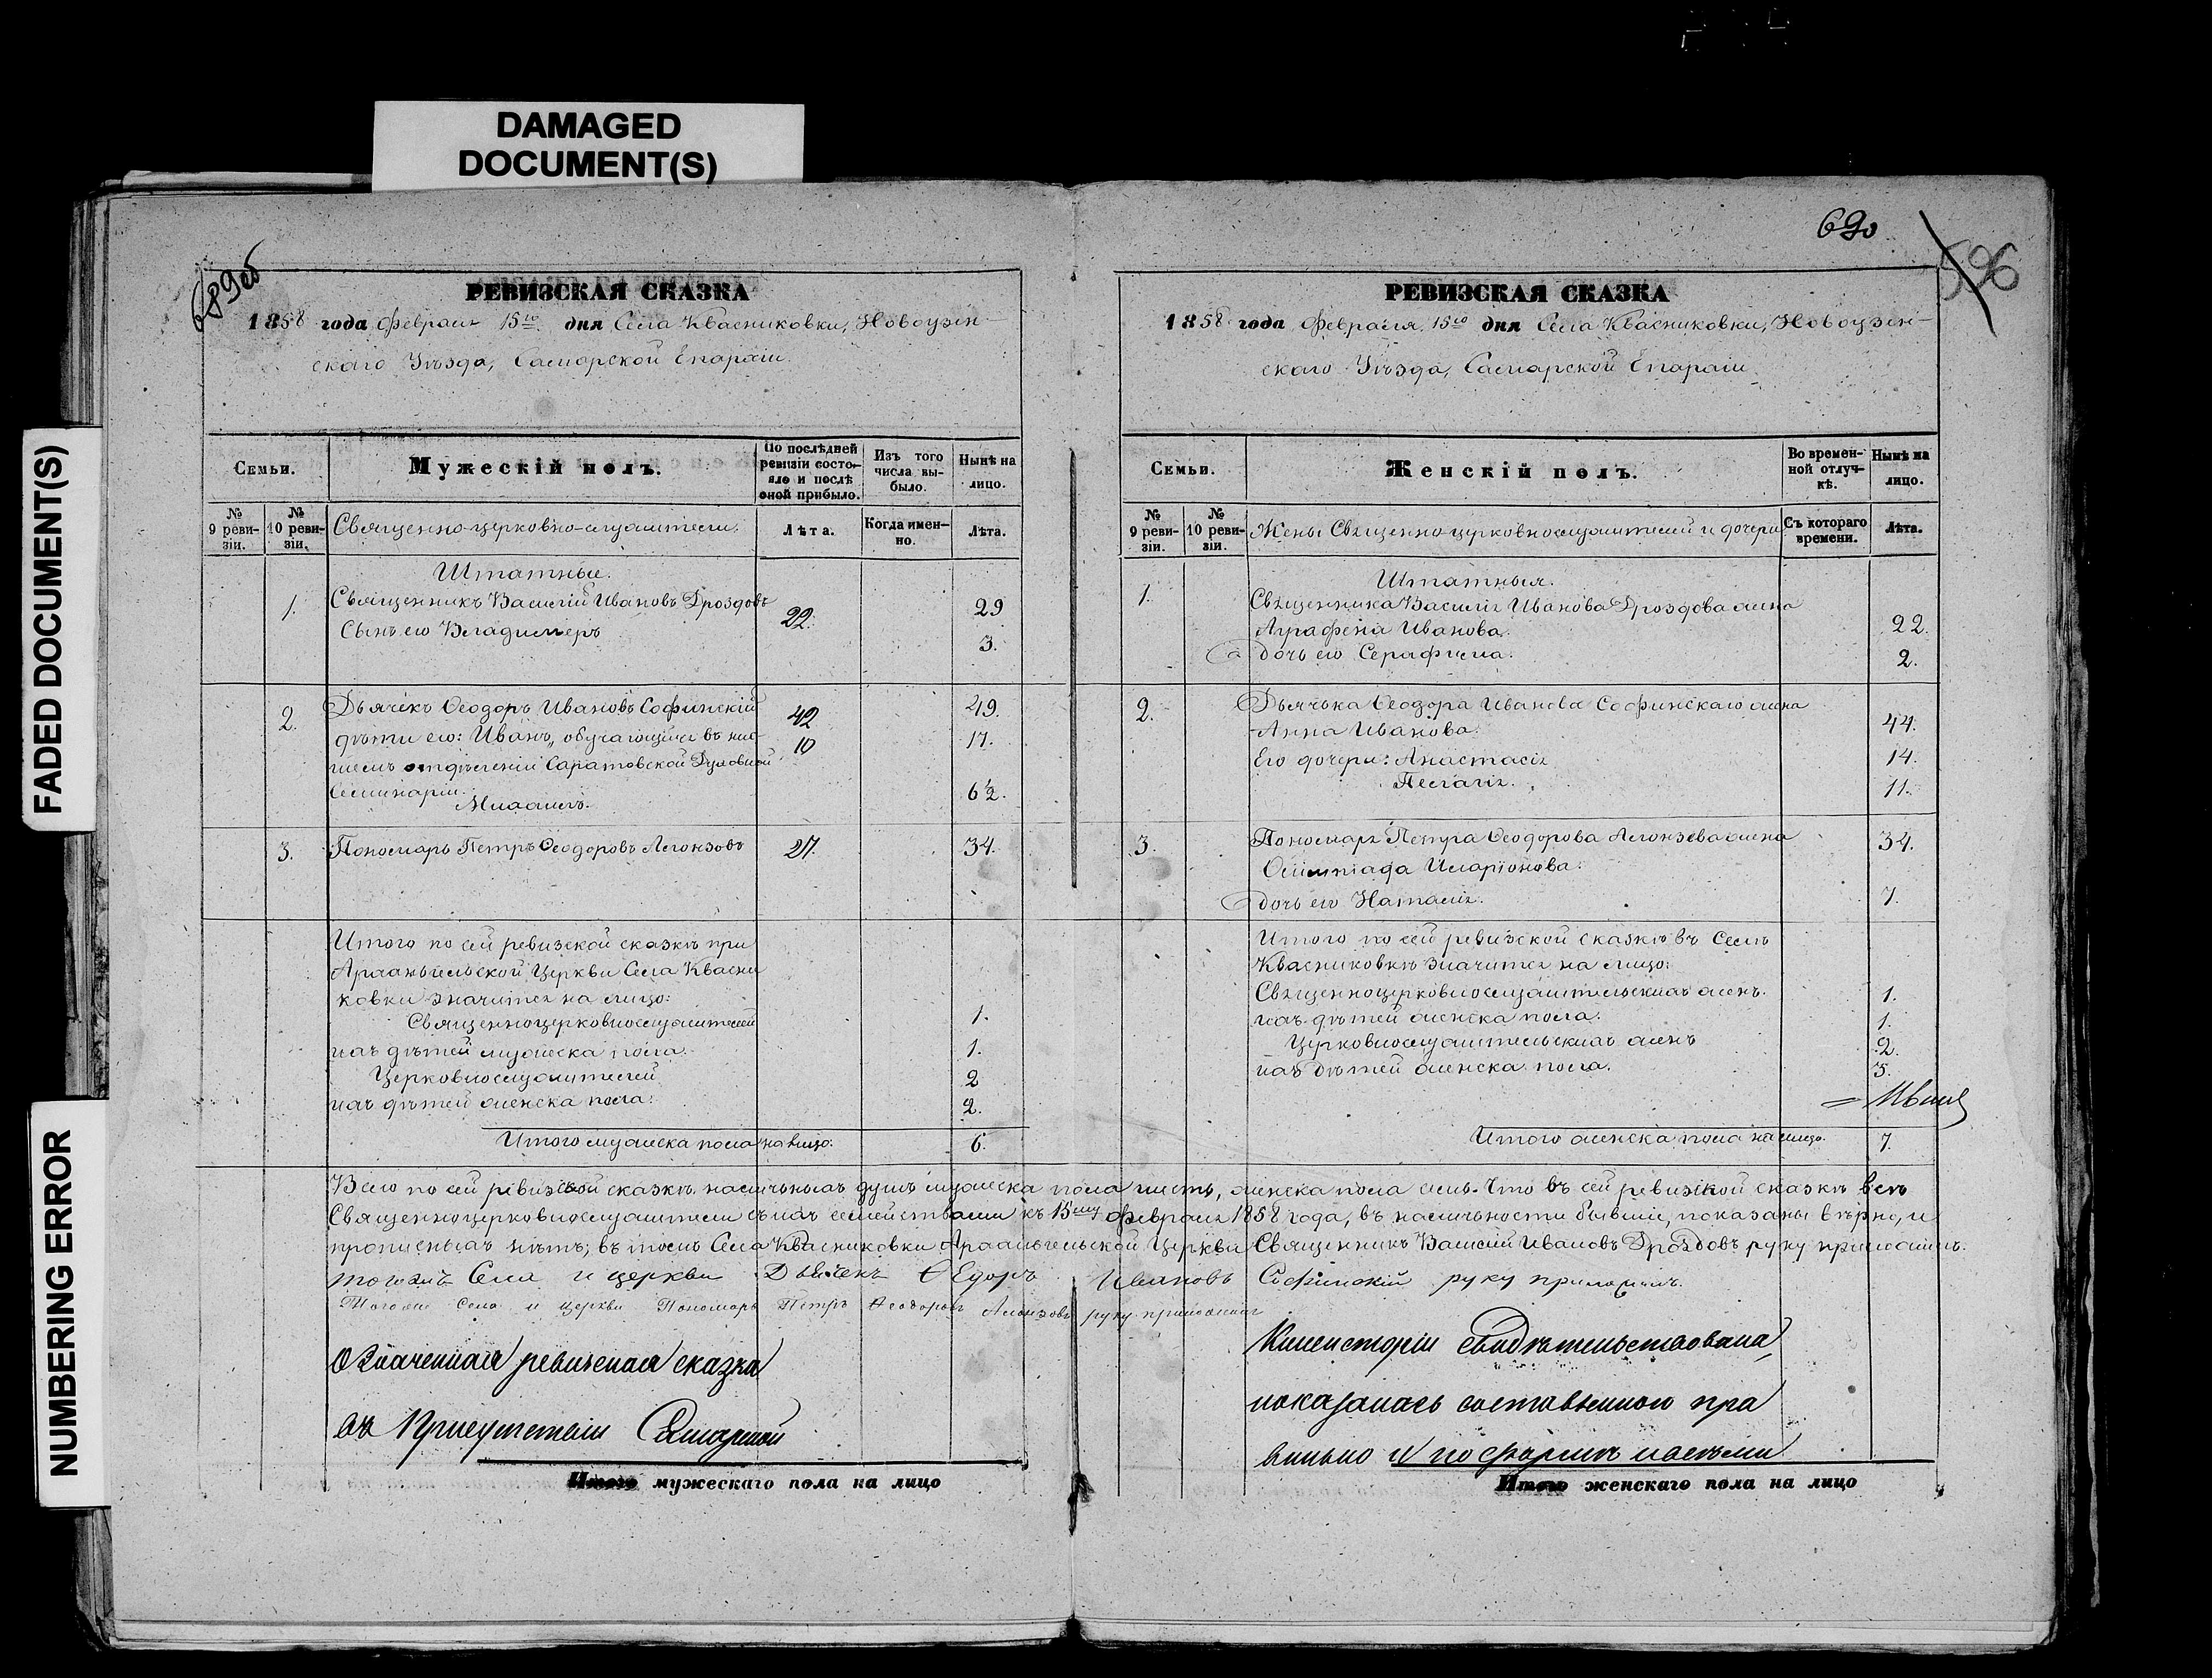 DAMAGED
DOCUMENT(S)
FADED DOCUMENT(S)
NUMBERING ERROR
689об
РЕВИЗСКАЯ СКАЗКА
1858 года Февраля 15го дня Села Квасниковки, Новоузен-
скаго Уѣзда, Самарской Епархіи.
Семьи.
Мужескій полъ.
По послѣдней ревизіи состояло и послѣ оной прибыло.
Изъ того числа выбыло.
Нынѣ на лицо.
№ 9 ревизіи.
№ 10 ревизіи.
Священно-церковно-служители.
Лѣта.
Когда именно.
Лѣта.
Штатные.
1. Священникъ Василій Ивановъ Дроздовъ 22. 29
Сынъ его Владимеръ 3.
2. Дьячекъ Ѳеодоръ Ивановъ Софинскій 42 49.
дѣти его: Иванъ, обучающійся въ нис- 10 17.
шемъ отдѣленіи Саратовской Духовной
Семинаріи.
Михаилъ. 6½.
3. Пономарь Петръ Ѳеодоровъ Алонзовъ 27. 34.
Итого по сей ревизской сказкѣ при
Архангельской Церкви Села Квасни
ковки значится на лицо:
Священноцерковнослужителей 1.
ихъ дѣтей мужеска пола. 1.
Церковнослужителей 2
ихъ дѣтей женска пола: 2.
Итого мужеска пола на лицо: 6.
690
596
РЕВИЗСКАЯ СКАЗКА
1858 года Февраля 15го дня Села Квасниковки, Новоузен-
скаго Уѣзда, Самарской Епархіи
Семьи.
Женскій полъ.
Во временной отлучкѣ.
Нынѣ на лицо.
№ 9 ревизіи.
№ 10 ревизіи.
Жены Священно-церковнослужителей и дочери
Съ котораго времени.
Лѣта.
Штатныя.
1. Священника Василія Иванова Дроздова жена
Аграфена Иванова. 22.
дочь его Серафима. 2.
2. Дьячька Ѳеодора Иванова Софинскаго жена
Анна Иванова. 44.
Его дочери: Анастасія 14.
Пелагія. 11.
3. Пономаря Петра Ѳеодорова Алонзева жена 34.
Олимпіада Иларіонова.
дочь его Наталія. 7.
Итого по сей ревизской сказкѣ въ Селѣ
Квасниковкѣ значится на лицо:
Священноцерковнослужительскихъ женъ. 1.
ихъ дѣтей женска пола. 1.
Церковнослужительскихъ женъ 2.
ихъ дѣтей женска пола. 3.
Итого женска пола на лицо. 7.
Всего по сей ревизской сказкѣ наличныхъ душъ мужеска пола шесть, женска пола семь. Что въ сей ревизской сказкѣ всѣ
Священноцерковнослужители съ ихъ семействами къ 15му Февраля 1858 года, въ наличности бывшіе, показаны вѣрно, и
прописныхъ нѣтъ; въ томъ Села Квасниковки Архангельской Церкви Священникъ Василій Ивановъ Дроздовъ руку приложилъ.
тогожъ Села и церкви Дьячекъ Ѳедоръ Ивановъ Софинскій руку приложилъ.
Тогоже Села и Церкви Пономарь Петръ Ѳеодоровъ Алонзовъ руку приложилъ
Означенная ревизская сказка
въ Присутствіи Самарской
Итого мужескаго пола на лицо
Консисторіи свидѣтельствована,
показалась составленною пра
вильно и по формѣ
Итого женскаго пола на лицо